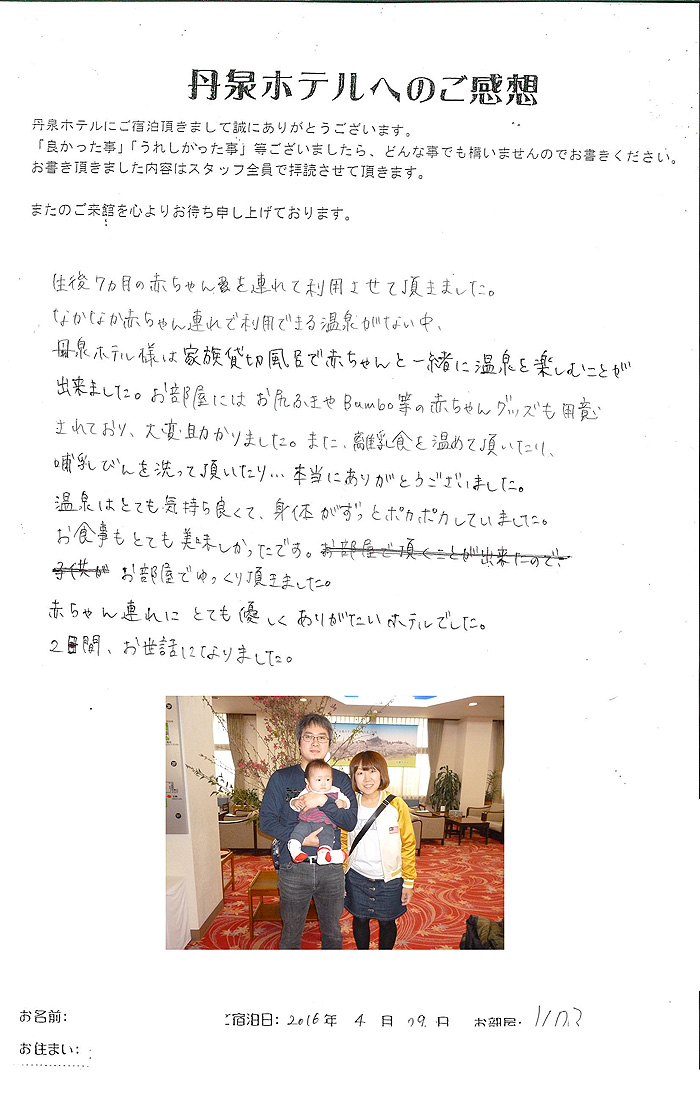 丹泉ホテルへのご感想
丹泉ホテルにご宿泊頂きまして誠にありがとうございます。
「良かった事」「うれしかった事」等ございましたら、どんな事でも構いませんのでお書きください。
お書き頂きました内容はスタッフ全員で拝読させて頂きます。
またのご来館を心よりお待ち申し上げております。
生後7ヵ月の赤ちゃんを連れて利用させて頂きました。
なかなか赤ちゃん連れで利用できる温泉がない中、
丹泉ホテル様は家族貸切風呂で赤ちゃんと一緒に温泉を楽しむことが
出来ました。お部屋にはお尻ふきやBumbo等の赤ちゃんグッズも用意
されており、大変助かりました。また、離乳食を温めて頂いたり、
哺乳びんを洗って頂いたり…本当にありがとうございました。
温泉はとても気持ち良くて、身体がずっとポカポカしていました。
お食事もとても美味しかったです。お部屋で頂くことが出来たので、
子供が お部屋でゆっくり頂きました。
赤ちゃん連れにとても優しくありがたいホテルでした。
2日間、お世話になりました。
お名前: ご宿泊日: 2016年 4月 29日 お部屋:
お住まい: